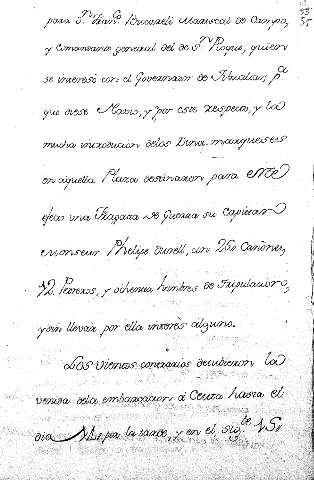 para Dn. Franco. Bucareli Mariscal de Campo,
y Comandante general del de Sn. Roque, quien
se interesó con el Governador de Gibraltar, pa.
que diese Moros, y por este respecto, y la
mucha introducion de los Dinamarqueses
en aquella Plaza destinaron para este
efeto una Fragata de Guerra su Capitan
Monsieur Phelipe Tunell, con 250 Cañones,
12 Pedreros, y ochenta hombres de Tripulacion,
y sin llevar por ella interès alguno.
Los vientos contrarios detubieron la
venida de la embarcacion à Ceuta hasta el
dia por la tarde, y en el sigte.